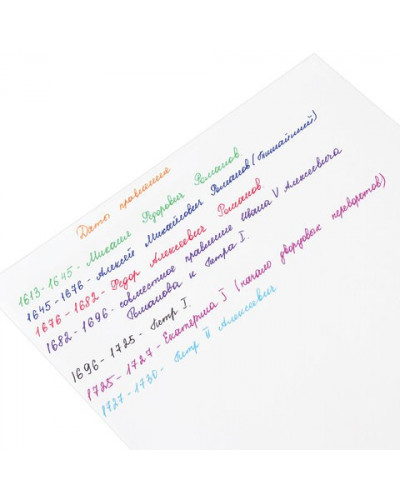 Даты правлений
1613-1645- Михаил Фёдорович Романов.
1645-1676- Алексей Михайлович Романов (тишайший)
1676-1682- Фёдор Алексеевич Романов.
1682-1696. совместное правление Ивана V Алексеевича
Романова и Петра I.
1696-1725- Петр I.
1725-1727- Екатерина I (начало дворцовых переворотов)
1727-1730- Петр II Алексеевич